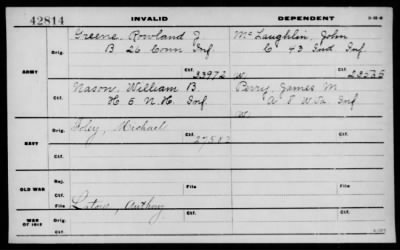 42814 INVALID DEPENDENT
ARMY
Orig. Greene, Rowland J McLaughlin, John
B 26 Conn Inf C 43 Ind Inf
Ctf. 33972 Ctf.
W.
Ctf. Nason, William B. Perry, James M.
H 5 N.H. Inf A 8 W.Va Inf
W.
NAVY
Orig. Foley, Michael
Ctf.
Ctf.
OLD WAR
Rej.
Ctf. File File
WAR OF 1812
Orig. Anthony Ctf.
Ctf.